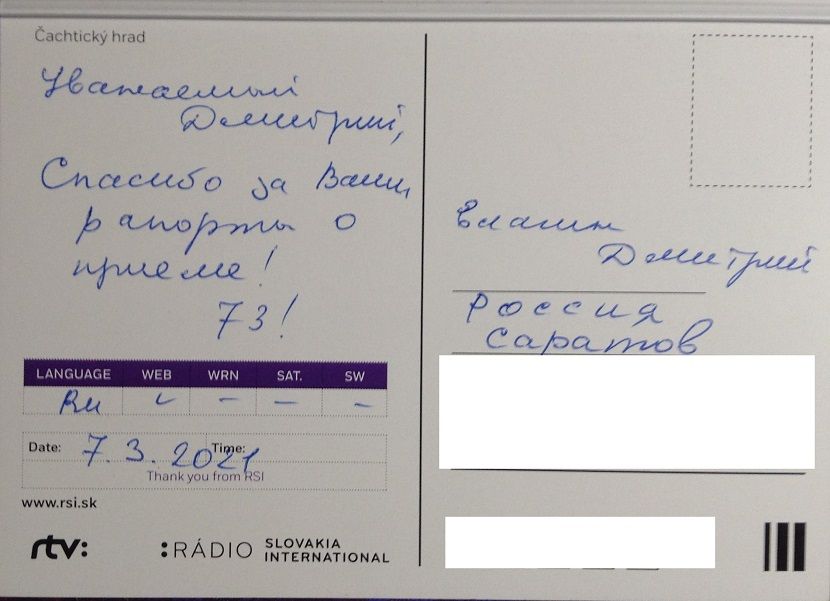 Čachtický hrad
Уважаемый
Дмитрий,
Спасибо за Ваши
рапорты о
приеме!
73!
LANGUAGE WEB WRN SAT. SW
RU ✓ – – –
Date: 7.3.2021 Time:
Thank you from RSI
www.rsi.sk
rtv:
:RÁDIO SLOVAKIA
INTERNATIONAL
Елагин
Дмитрий
Россия
Саратов